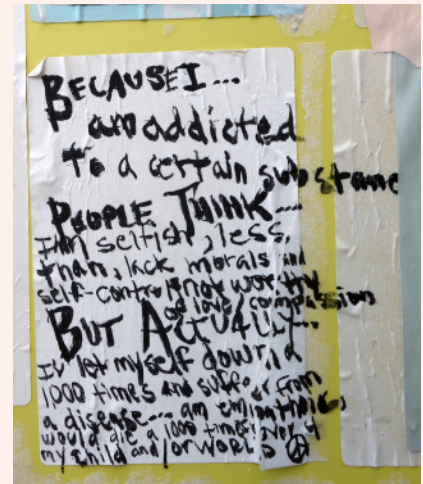 BECAUSE I...
am addicted
to a certain substance
PEOPLE THINK...
I'm selfish, less,
than, lack morals and
self-control, not worthy
of love/compassion
BUT ACTUALLY...
Iv let myself down, a
1000 times and suffer from
a disease... am
would die a 1000 times over 4
my child and/or WORLD